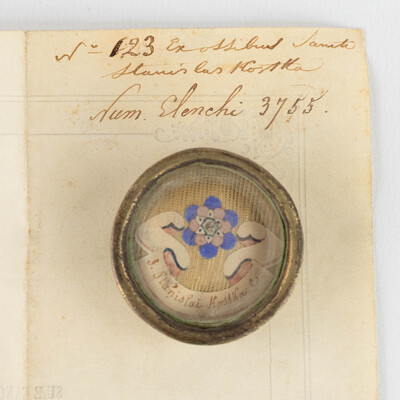 No 123 Ex ossibus Sancti
Stanislas Kostka
Num. Elenchi 3755.
S. Stanislai Kostka C.